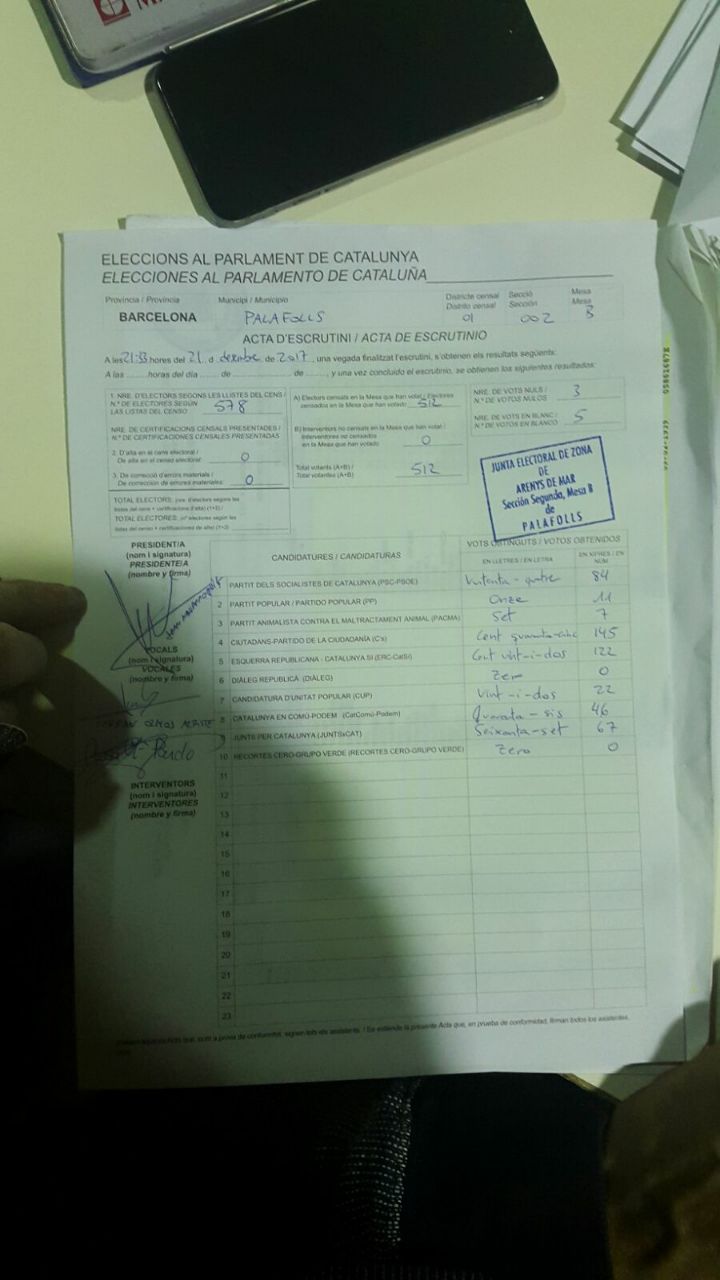 ELECCIONS AL PARLAMENT DE CATALUNYA
ELECCIONES AL PARLAMENTO DE CATALUÑA
Provincia / Provincia Municipi / Municipio Districte censal Secció Mesa
Distrito censal Sección Mesa
BARCELONA PALAFOLLS 01 002 B
ACTA D'ESCRUTINI / ACTA DE ESCRUTINIO
A les 21:33 hores del 21 d desembre de 2017, una vegada finalitzat l'escrutini, s'obtenen els resultats següents:
A las ........ horas del día ...... de .................... de ........, y una vez concluido el escrutinio, se obtienen los siguientes resultados:
1. NRE. D'ELECTORS SEGONS LES LLISTES DEL CENS /
N.º DE ELECTORES SEGÚN
LAS LISTAS DEL CENSO 578
NRE. DE CERTIFICACIONS CENSALS PRESENTADES /
N.º DE CERTIFICACIONES CENSALES PRESENTADAS
2. D'alta en el cens electoral /
De alta en el censo electoral 0
3. De correcció d'errors materials /
De corrección de errores materiales 0
TOTAL ELECTORS
TOTAL ELECTORES
A) Electors censats en la Mesa que han votat / Electores
censados en la Mesa que han votado 512
B) Interventors no censats en la Mesa que han votat /
Interventores no censados
en la Mesa que han votado 0
Total votants (A+B) /
Total votantes (A+B) 512
NRE. DE VOTS NULS /
N.º DE VOTOS NULOS 3
NRE. DE VOTS EN BLANC /
N.º DE VOTOS EN BLANCO 5
JUNTA ELECTORAL DE ZONA
DE
ARENYS DE MAR
Sección Segunda, Mesa B
de
PALAFOLLS
PRESIDENT/A
(nom i signatura)
PRESIDENTE/A
(nombre y firma)
VOCALS
(nom i signatura)
VOCALES
(nombre y firma)
INTERVENTORS
(nom i signatura)
INTERVENTORES
(nombre y firma)
CANDIDATURES / CANDIDATURAS VOTS OBTINGUTS / VOTOS OBTENIDOS
EN LLETRES / EN LETRA EN XIFRES / EN NÚM
1 PARTIT DELS SOCIALISTES DE CATALUNYA (PSC-PSOE) Vuitanta-quatre 84
2 PARTIT POPULAR / PARTIDO POPULAR (PP) Onze 11
3 PARTIT ANIMALISTA CONTRA EL MALTRACTAMENT ANIMAL (PACMA) Set 7
4 CIUTADANS-PARTIDO DE LA CIUDADANÍA (C's) Cent quaranta-cinc 145
5 ESQUERRA REPUBLICANA - CATALUNYA SÍ (ERC-CatSí) Cent vint-i-dos 122
6 DIÀLEG REPUBLICÀ (DIÀLEG) Zero 0
7 CANDIDATURA D'UNITAT POPULAR (CUP) Vint-i-dos 22
8 CATALUNYA EN COMÚ-PODEM (CatComú-Podem) Quaranta-sis 46
9 JUNTS PER CATALUNYA (JUNTSxCAT) Seixanta-set 67
10 RECORTES CERO-GRUPO VERDE (RECORTES CERO-GRUPO VERDE) Zero 0
11
12
13
14
15
16
17
18
19
20
21
22
23